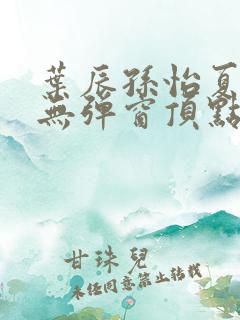 葉辰孫怡夏
無彈窗頂點
甘珠兒
未經同意禁止轉載